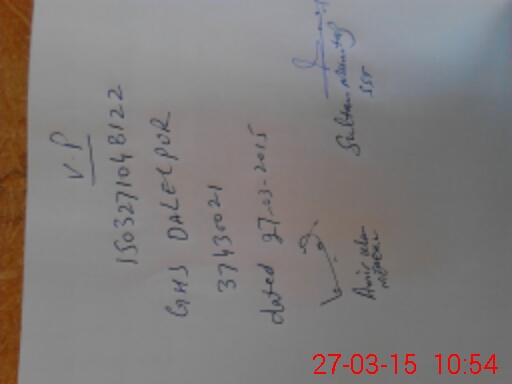 V.P
1503271048122
GHS DALELPUR
37430021
dated 27-03-2015
Sultan
SST
27-03-15 10:54